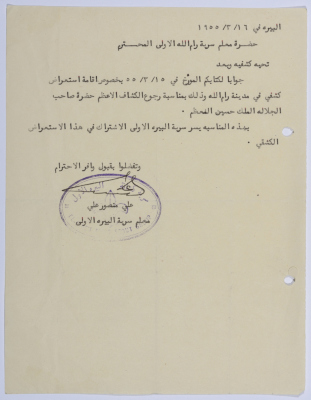 البيره في ١٦/٣/١٩٥٥
حضرة معلم سرية رام الله الاولى المحترم
تحيه كشفيه وبعد
جوابا لكتابكم المؤرخ في ١٥/٣/٥٥ بخصوص اقامة استعراض
كشفي في مدينة رام الله وذلك بمناسبة رجوع الكشاف الاعظم حضرة صاحب
الجلاله الملك حسين المعظم ٠
بهذه المناسبه يسر سرية البيره الاولى الاشتراك في هذا الاستعراض
الكشفي ٠
وتفضلوا بقبول وافر الاحترام
علي منصور علي
معلم سرية البيره الاولى